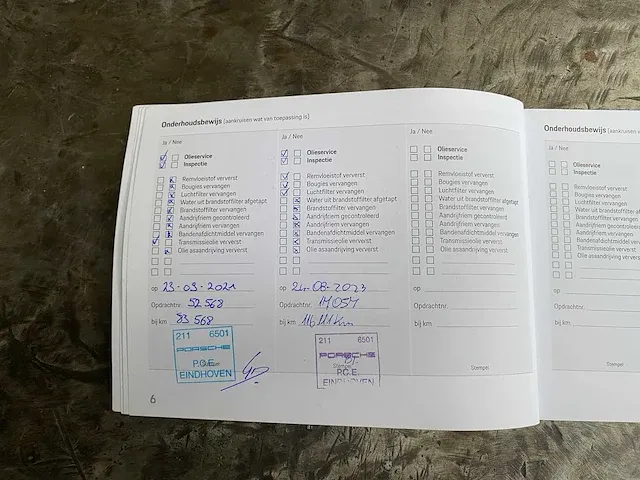 Onderhoudsbewijs (aankruisen wat van toepassing is)
Ja / Nee
Olieservice
Inspectie
Remvloeistof ververst
Bougies vervangen
Luchtfilter vervangen
Water uit brandstoffilter afgetapt
Brandstoffilter vervangen
Aandrijfriem gecontroleerd
Aandrijfriem vervangen
Bandenafdichtmiddel vervangen
Transmissieolie ververst
Olie asaandrijving ververst
op 23-03-2021
Opdrachtnr. 52 568
bij km 83 568
211 6501
PORSCHE
P.C.E.
EINDHOVEN
Ja / Nee
Olieservice
Inspectie
Remvloeistof ververst
Bougies vervangen
Luchtfilter vervangen
Water uit brandstoffilter afgetapt
Brandstoffilter vervangen
Aandrijfriem gecontroleerd
Aandrijfriem vervangen
Bandenafdichtmiddel vervangen
Transmissieolie ververst
Olie asaandrijving ververst
op 24-08-2023
Opdrachtnr. 14054
bij km 116.111 km
211 6501
PORSCHE
P.C.E.
EINDHOVEN
Ja / Nee
Olieservice
Inspectie
Remvloeistof ververst
Bougies vervangen
Luchtfilter vervangen
Water uit brandstoffilter afgetapt
Brandstoffilter vervangen
Aandrijfriem gecontroleerd
Aandrijfriem vervangen
Bandenafdichtmiddel vervangen
Transmissieolie ververst
Olie asaandrijving ververst
op
Opdrachtnr.
bij km
Stempel
6
Onderhoudsbewijs (aankruisen
Ja / Nee
Olieservice
Inspectie
Remvloeistof ververst
Bougies vervangen
Luchtfilter vervangen
Water uit brandstof
Brandstoffilter ver
Aandrijfriem gecon
Aandrijfriem verva
Bandenafdichtmid
Transmissieolie ver
Olie asaandrijving
op
Opdrachtnr.
bij km
Stempel